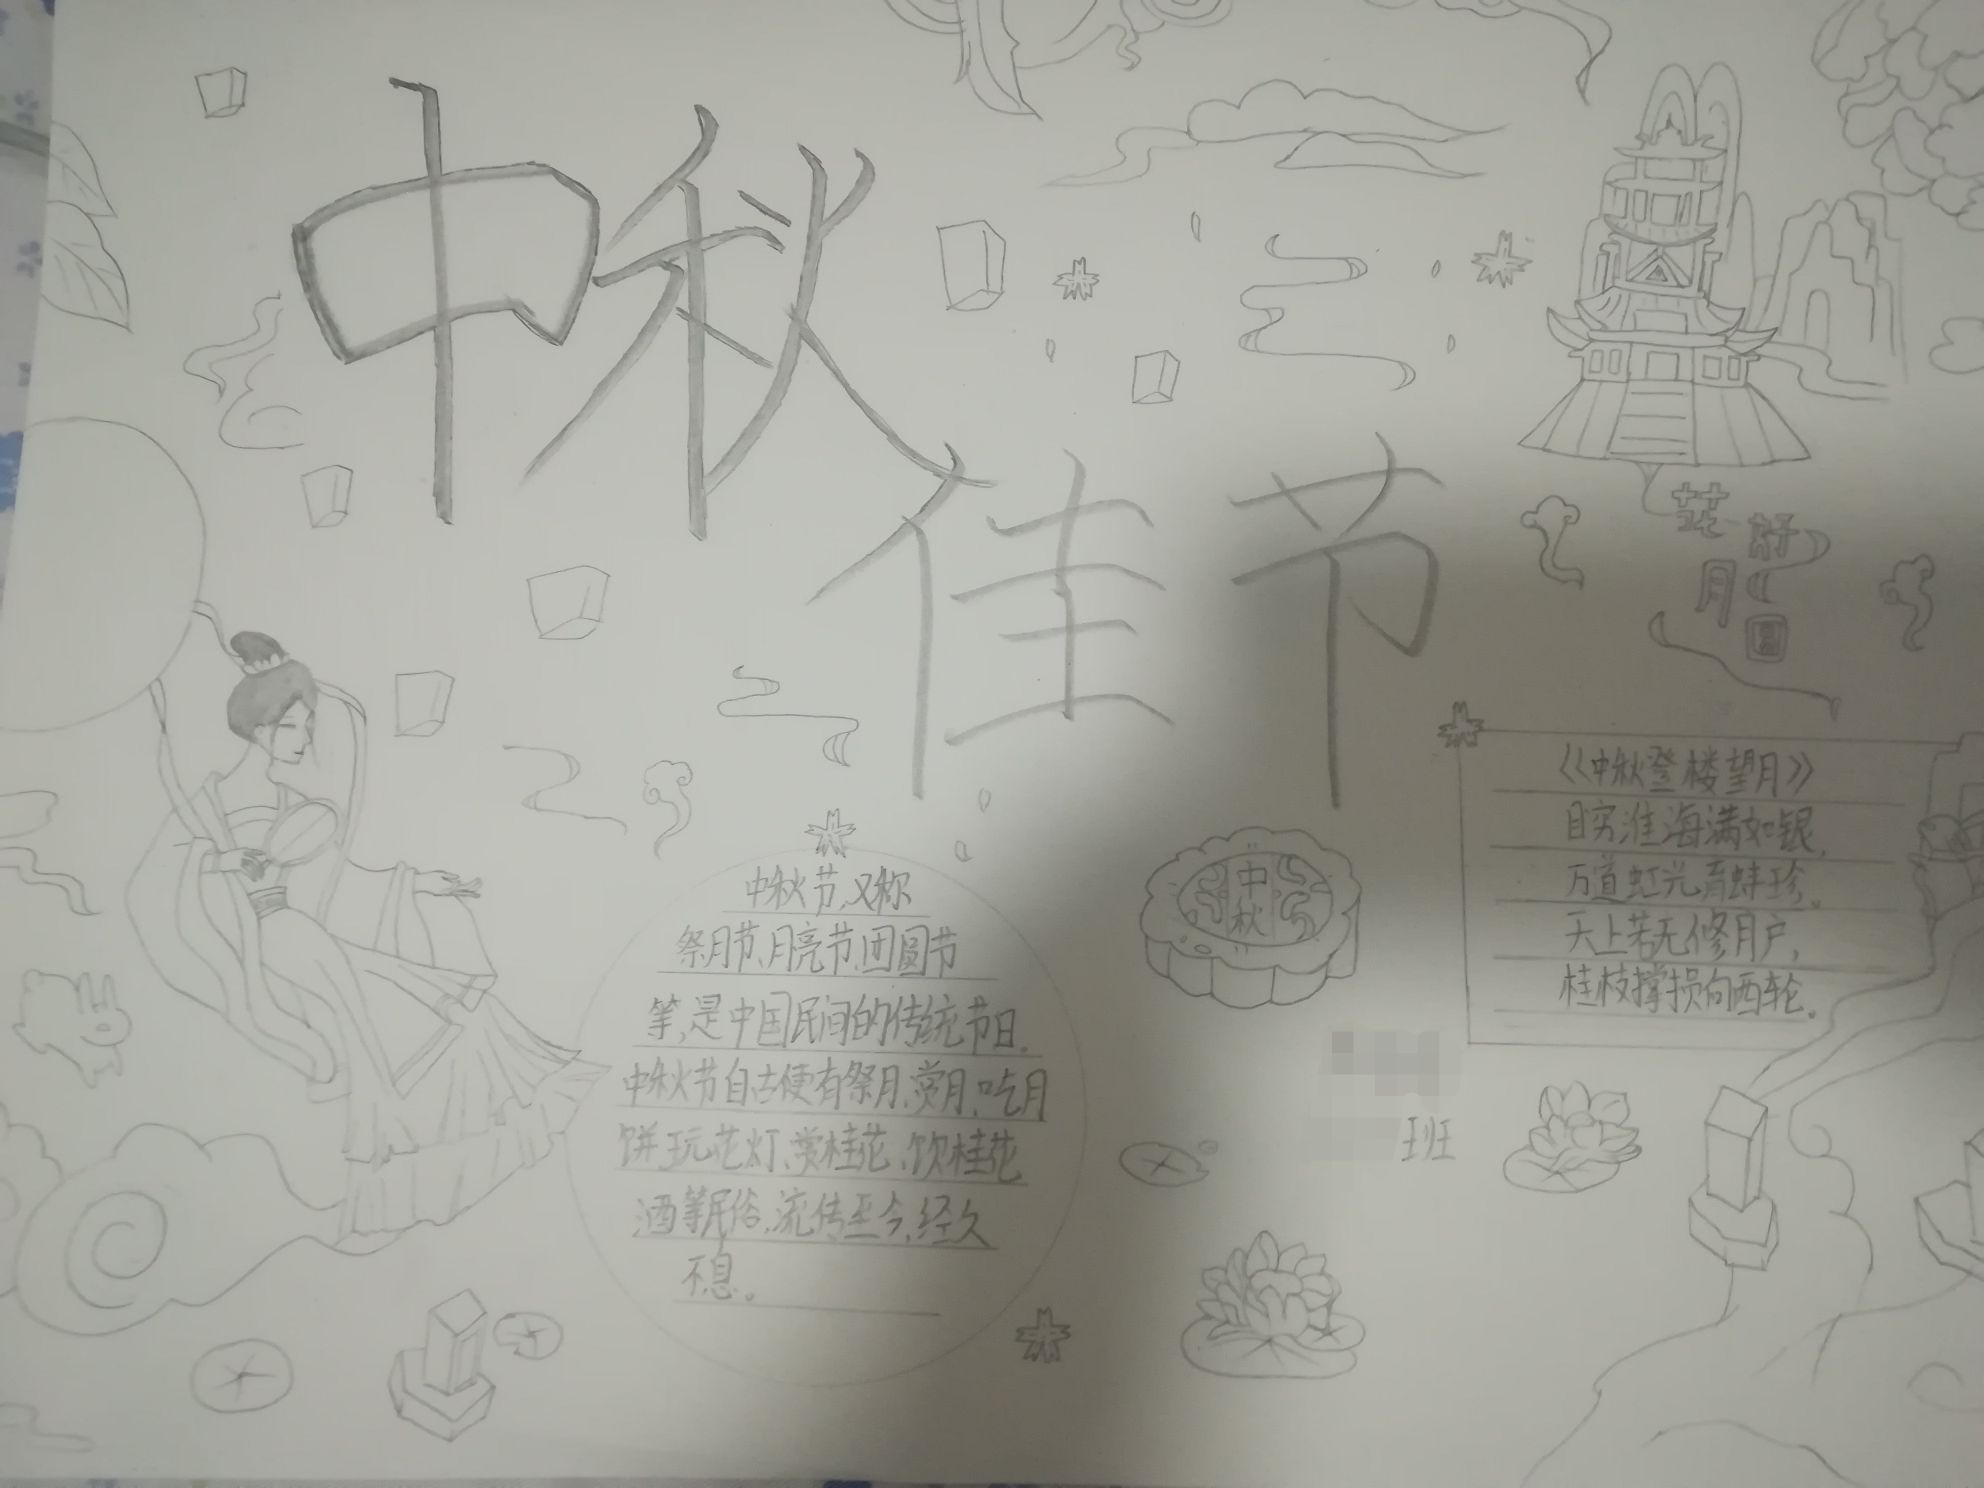 中秋
佳节
花好
月圆
《中秋登楼望月》
目穷淮海满如银,
万道虹光育蚌珍。
天上若无修月户,
桂枝撑损向西轮。
中秋节,又称
祭月节、月亮节、团圆节
等,是中国民间的传统节日。
中秋节自古便有祭月、赏月、吃月
饼、玩花灯、赏桂花、饮桂花
酒等民俗,流传至今,经久
不息。
中
秋
班